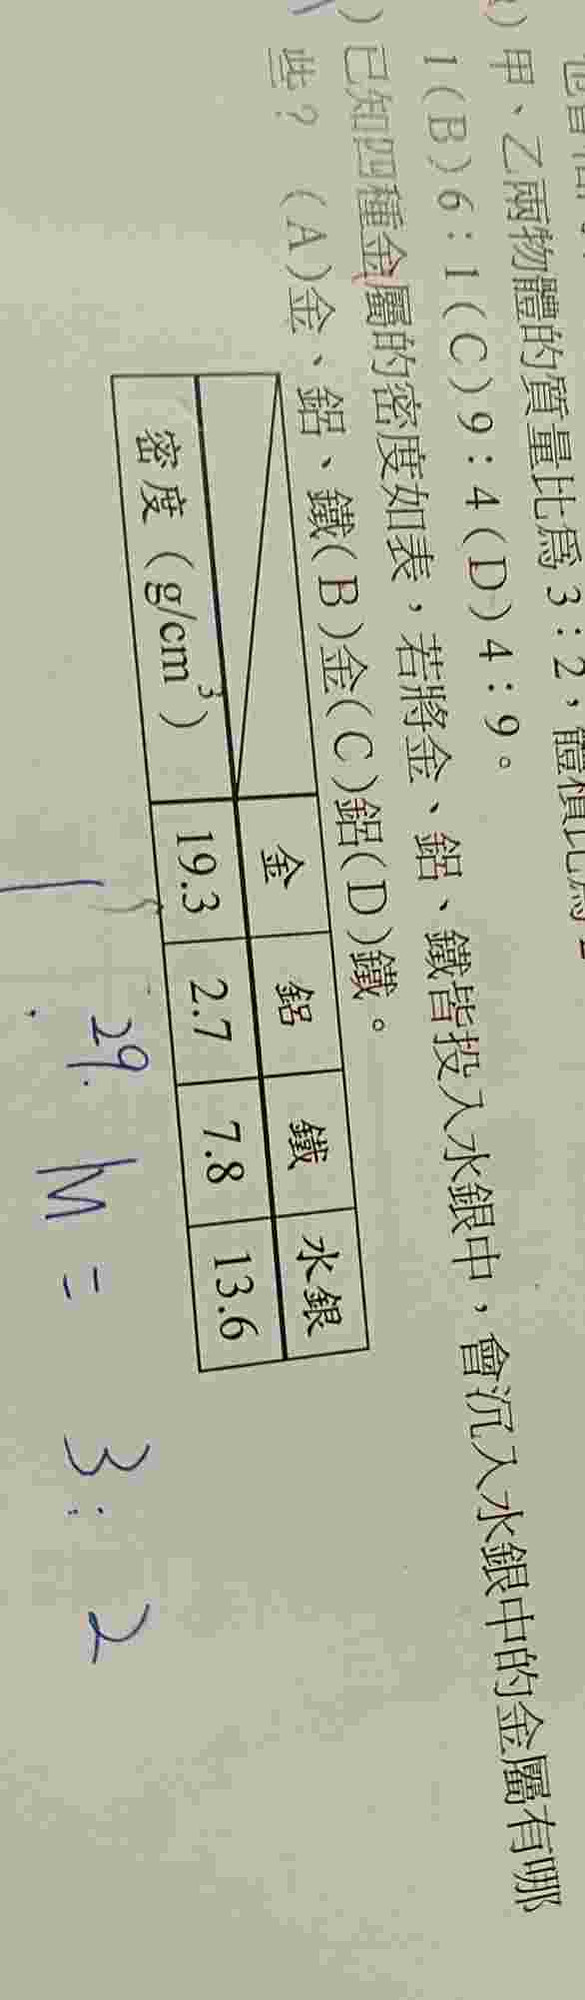 )甲、乙兩物體的質量比爲 3:2,體積比爲
1(B)6:1(C)9:4(D)4:9。
)已知四種金屬的密度如表,若將金、鋁、鐵皆投入水銀中,會沉入水銀中的金屬有哪
些? (A)金、鋁、鐵(B)金(C)鋁(D)鐵。
金 鋁 鐵 水銀
密度(g/cm³) 19.3 2.7 7.8 13.6
29. M = 3:2